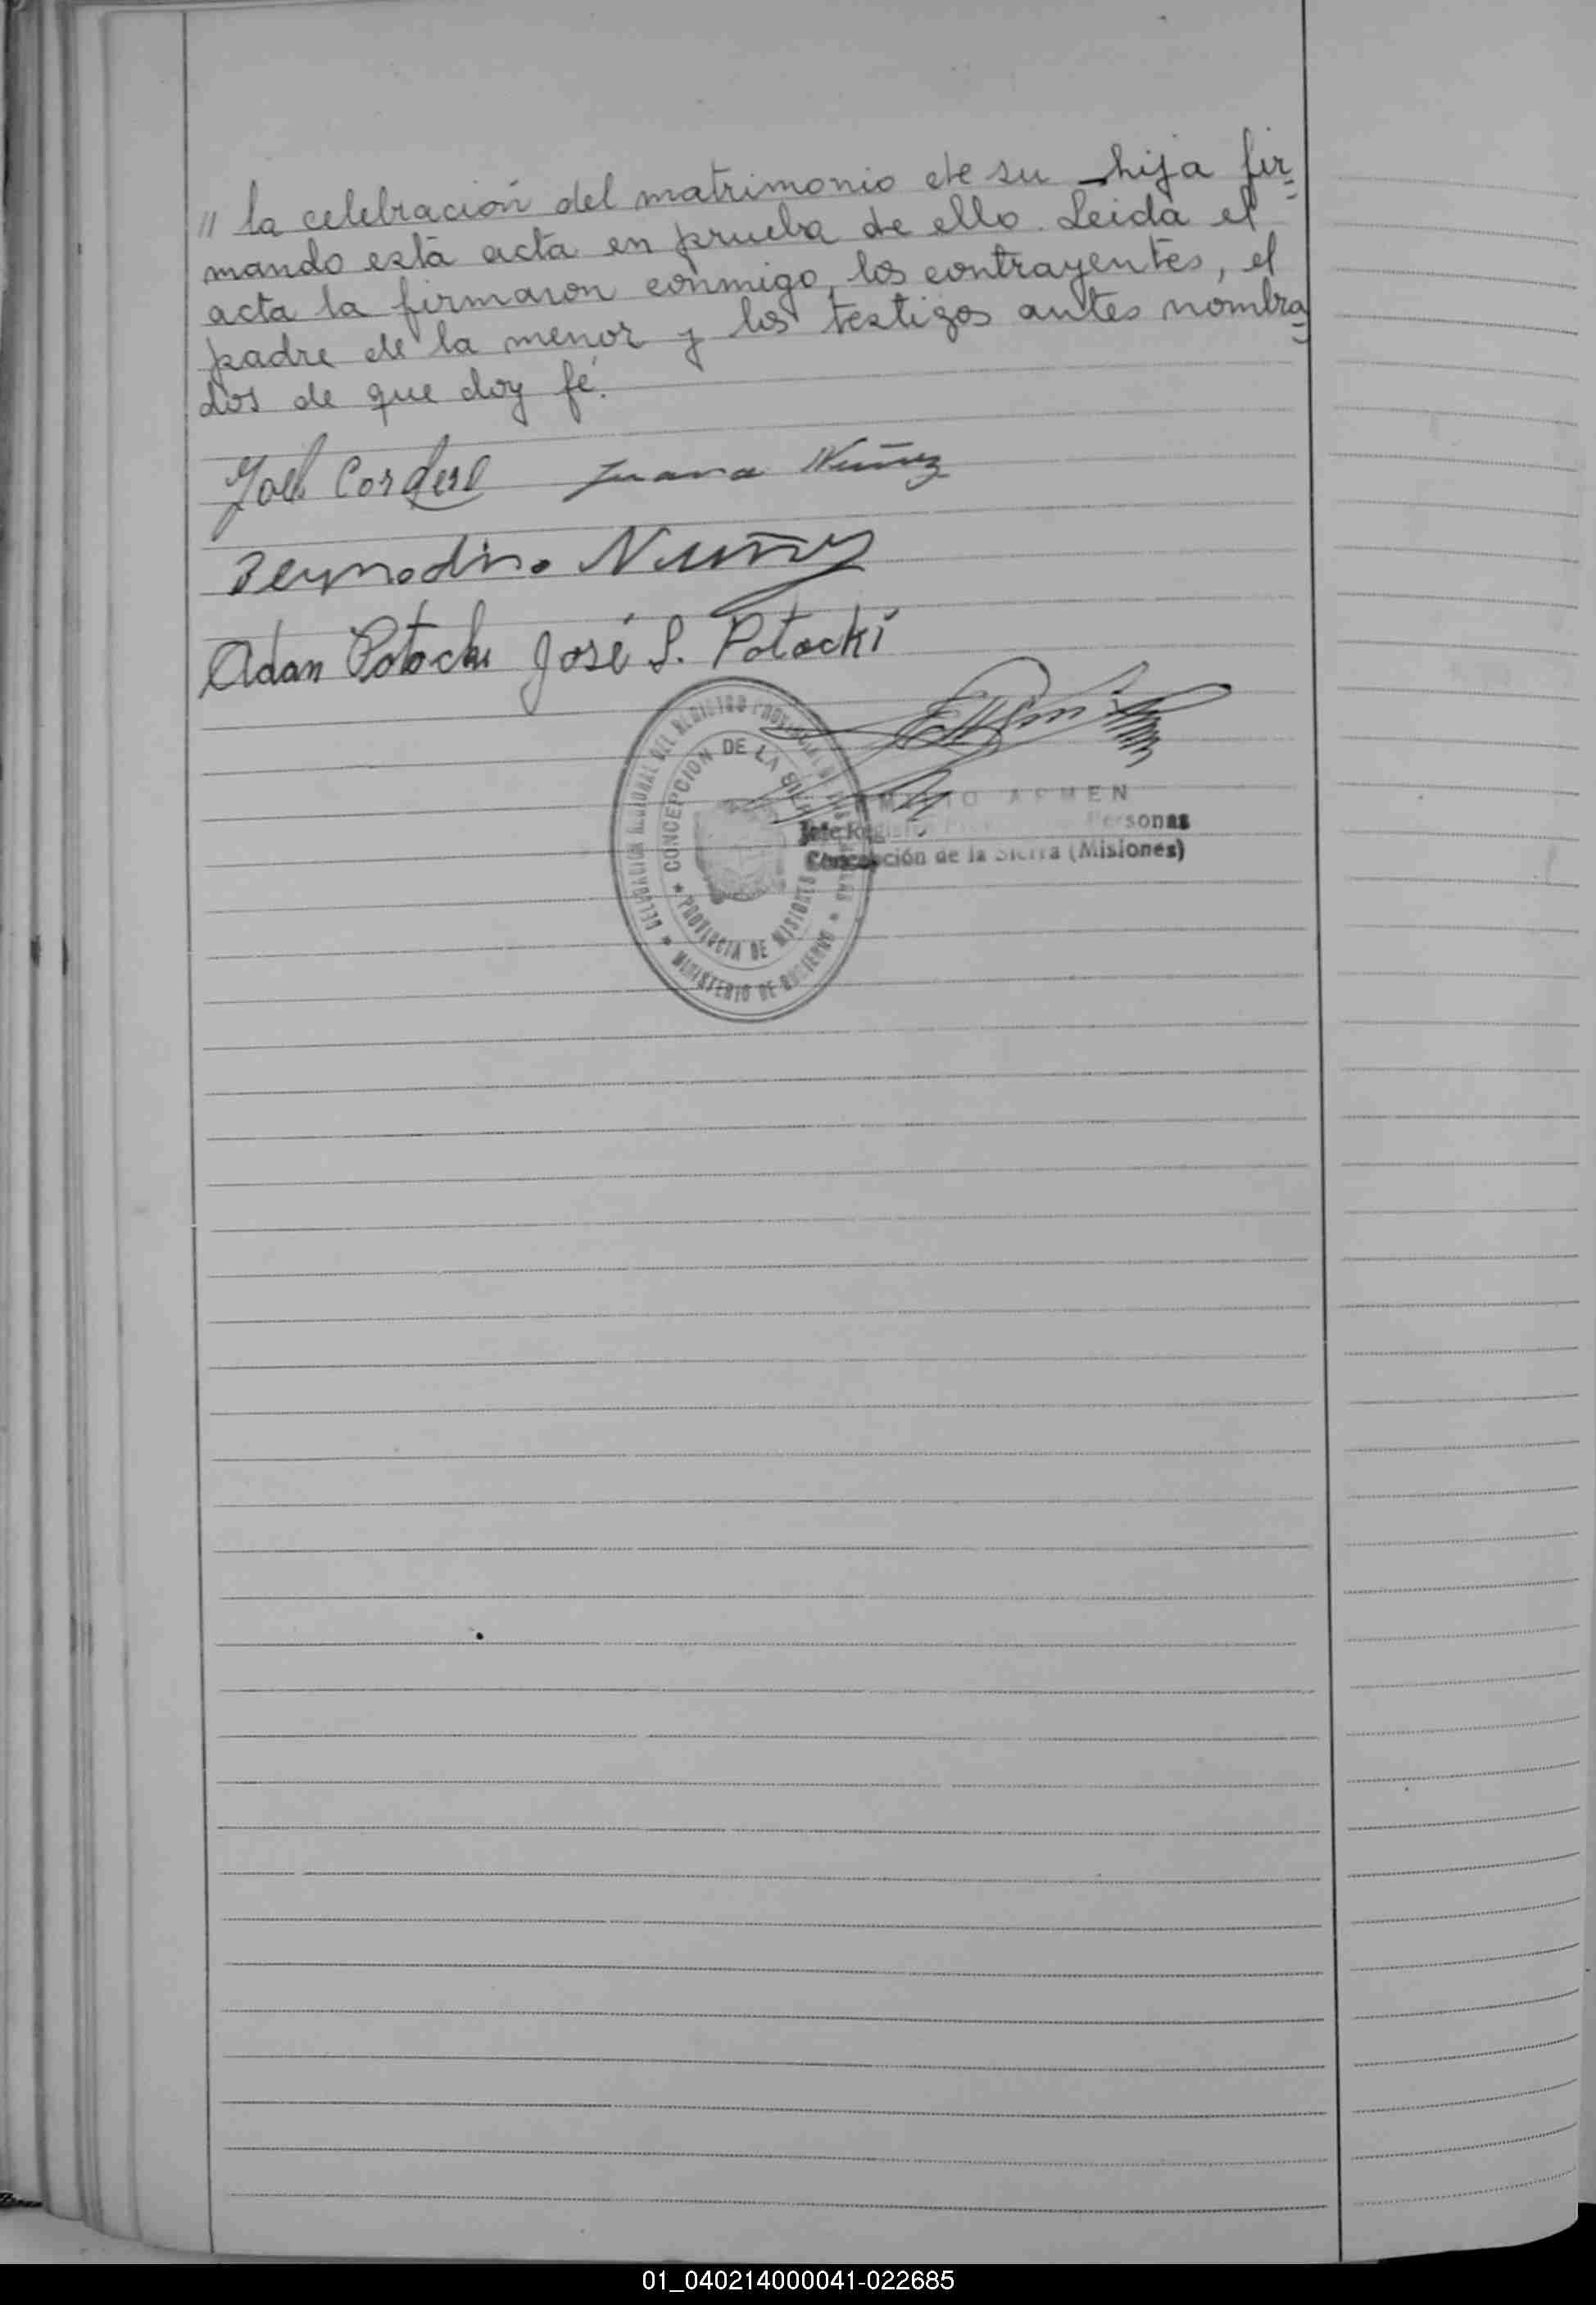 // la celebración del matrimonio de su hija fir-
mando está acta en prueba de ello. Leida el
acta la firmaron conmigo, los contrayentes, el
padre de la menor y los testigos antes nombra-
dos de que doy fé.
Joel Cordero Juana Nuñez
Bernodino Nuñez
Adan Potocki José S. Potocki
DELEGACION REGIONAL DEL REGISTRO PROVINCIAL DE
CONCEPCION DE LA SIERRA
* PROVINCIA DE MISIONES
* MINISTERIO DE GOBIERNO *
ARMEN
Jefe Registro Personas
Concepción de la Sierra (Misiones)
01_040214000041-022685